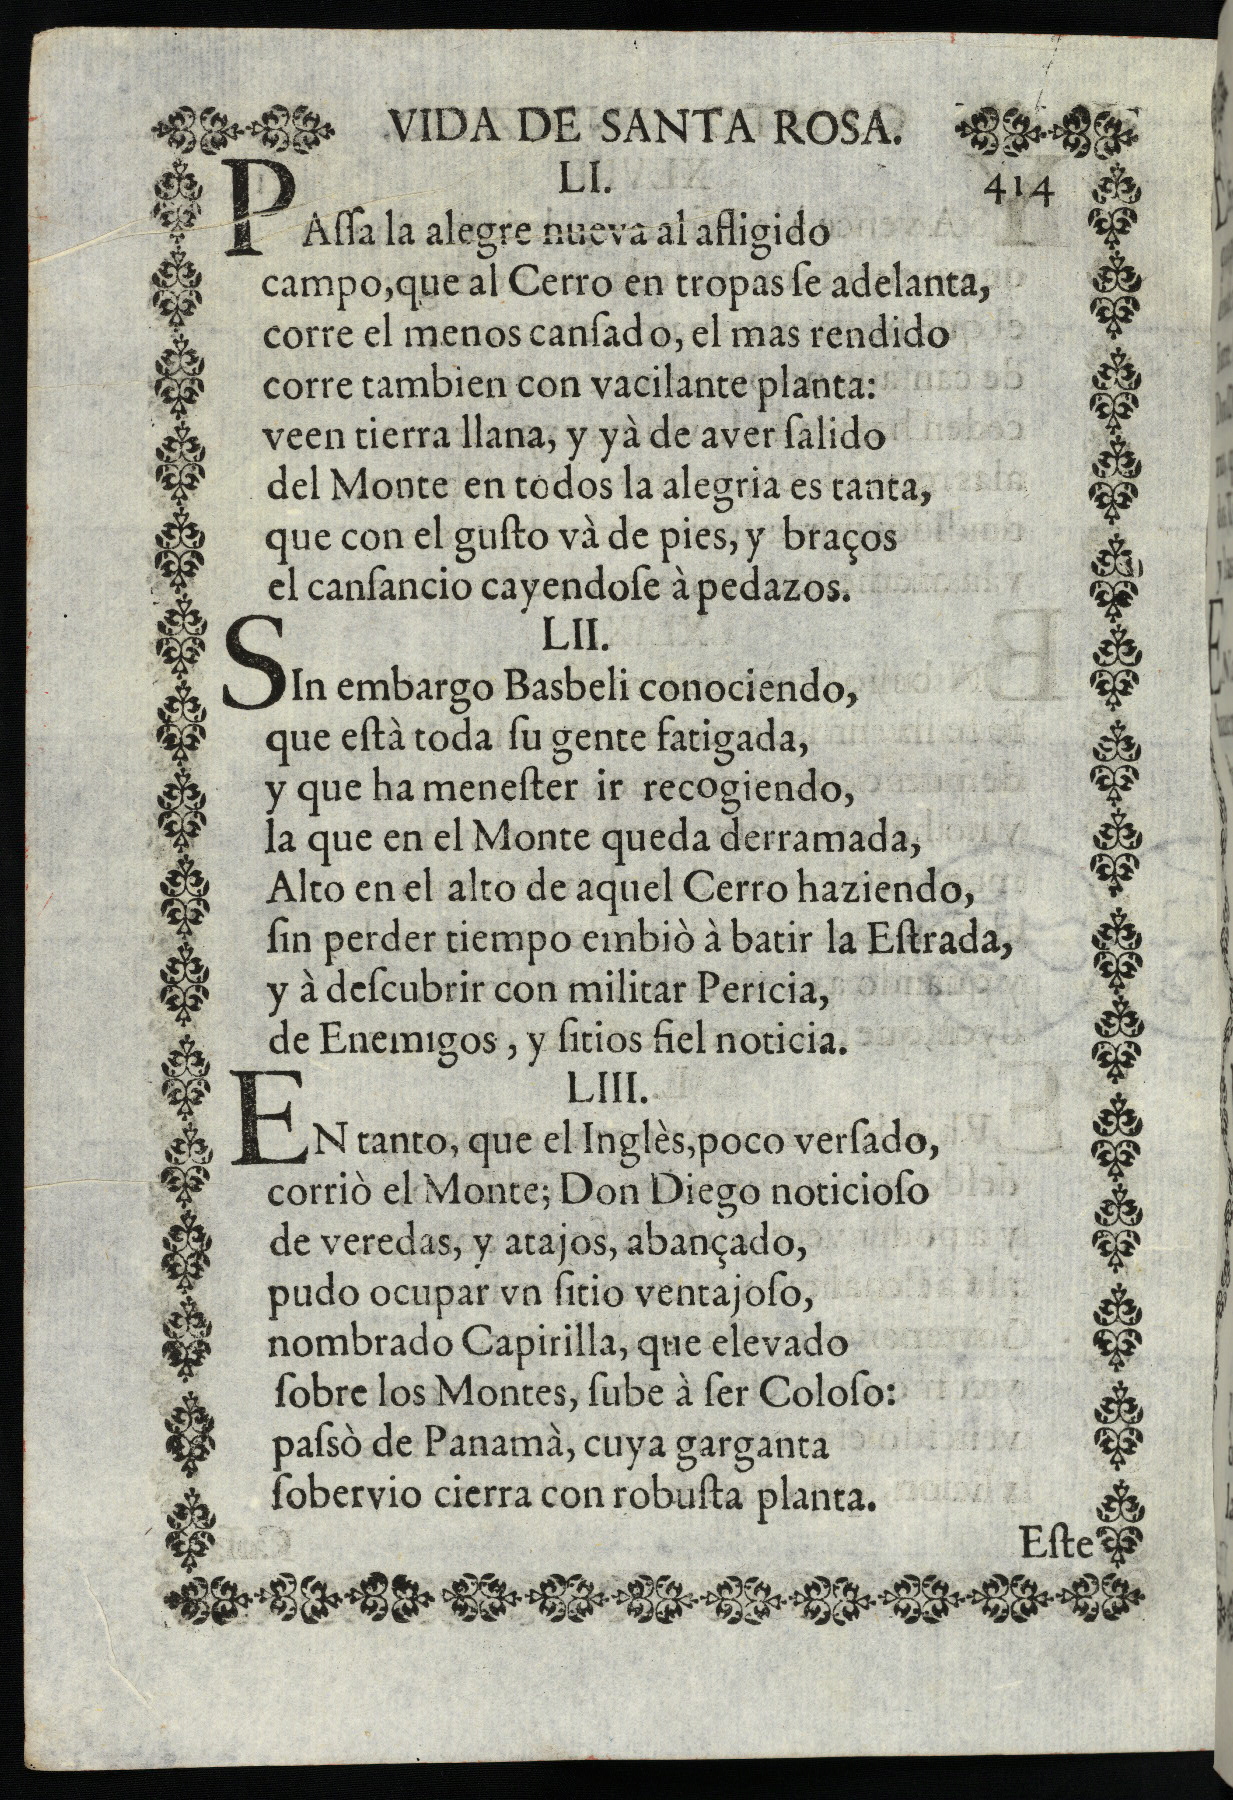 VIDA DE SANTA ROSA.
LI.
414
PAſſa la alegre nueva al afligido
campo,que al Cerro en tropas ſe adelanta,
corre el menos canſado, el mas rendido
corre tambien con vacilante planta:
veen tierra llana, y yà de aver ſalido
del Monte en todos la alegria es tanta,
que con el guſto và de pies, y braços
el canſancio cayendoſe à pedazos.
LII.
SIn embargo Basbeli conociendo,
que eſtà toda ſu gente fatigada,
y que ha meneſter ir recogiendo,
la que en el Monte queda derramada,
Alto en el alto de aquel Cerro haziendo,
ſin perder tiempo embiò à batir la Eſtrada,
y à deſcubrir con militar Pericia,
de Enemigos , y ſitios fiel noticia.
LIII.
EN tanto, que el Inglès,poco verſado,
corriò el Monte; Don Diego noticioſo
de veredas, y atajos, abançado,
pudo ocupar vn ſitio ventajoſo,
nombrado Capirilla, que elevado
ſobre los Montes, ſube à ſer Coloſo:
paſsò de Panamà, cuya garganta
ſobervio cierra con robuſta planta.
Eſte